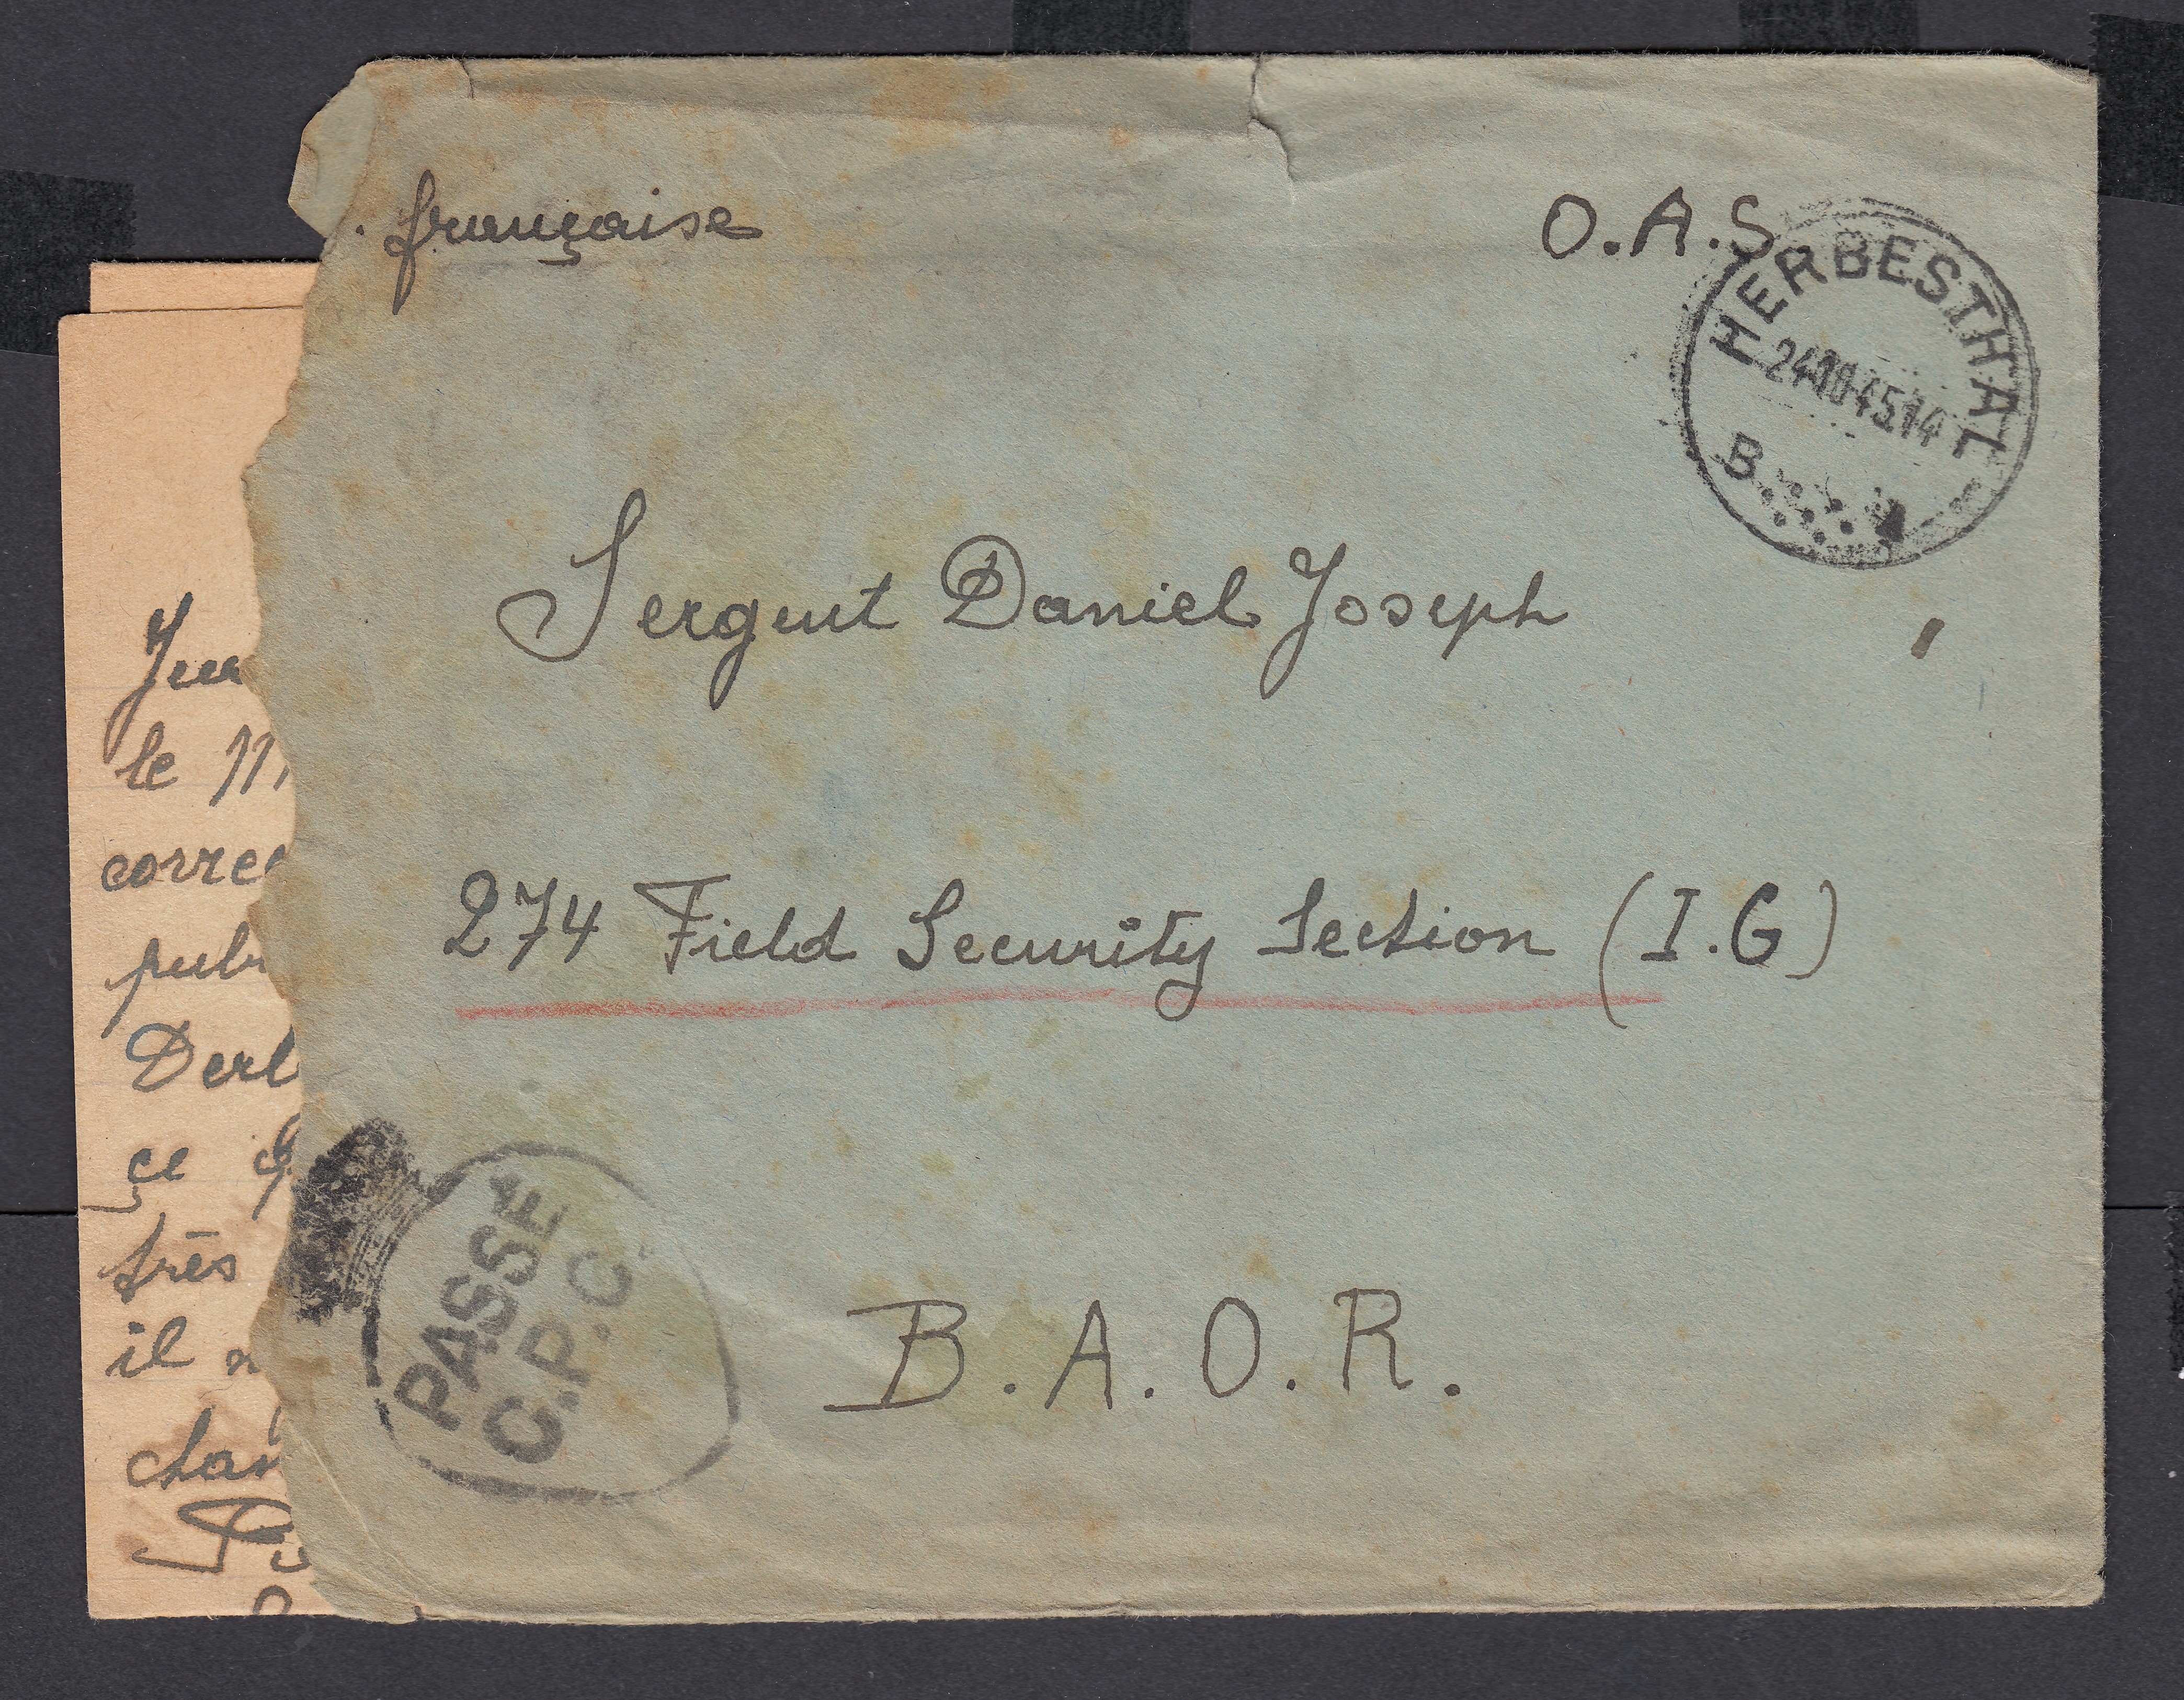 française
O.A.S
HERBESTHAL
24 10 45 14
B
Sergent Daniel Joseph
274 Field Security Section (I.G)
B.A.O.R.
PASSÉ
C.P.C.
le
ce
très
il